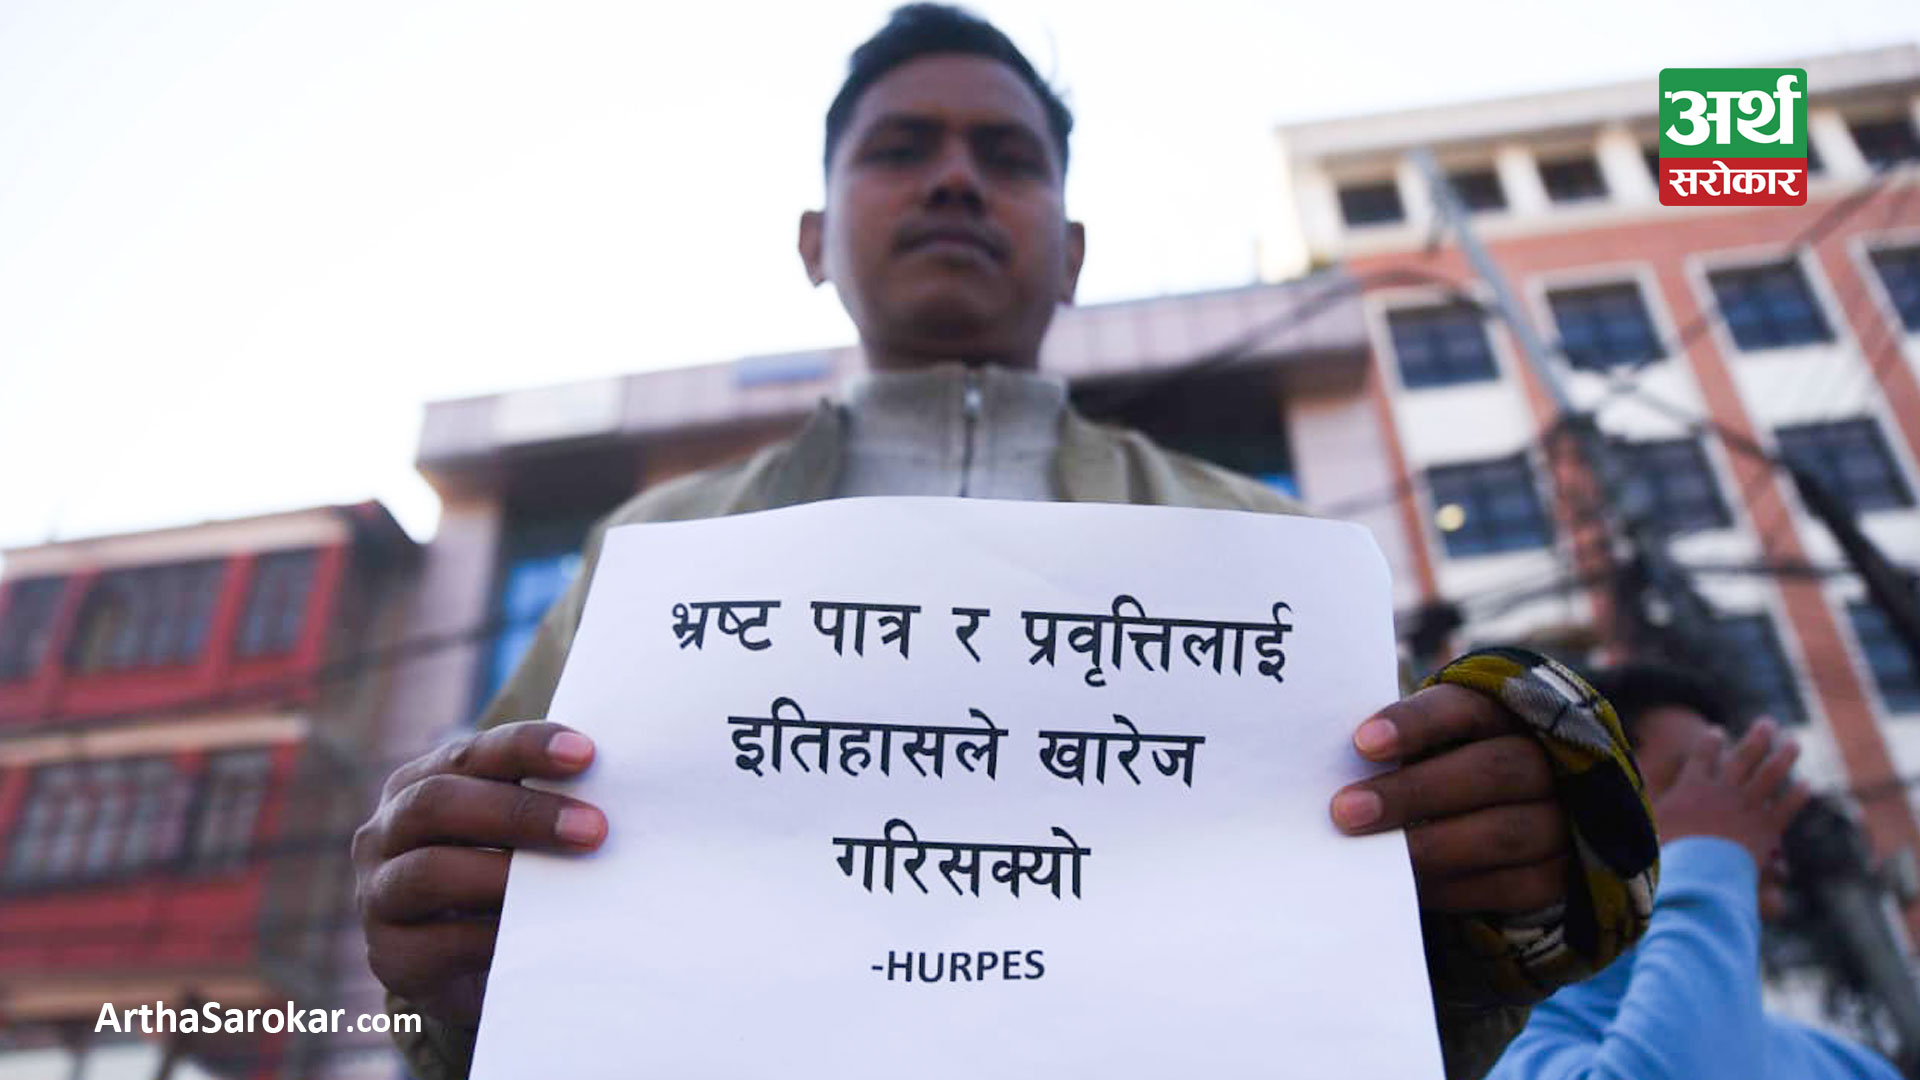 अर्थ
सरोकार
भ्रष्ट पात्र र प्रवृत्तिलाई
इतिहासले खारेज
गरिसक्यो
-HURPES
ArthaSarokar.com